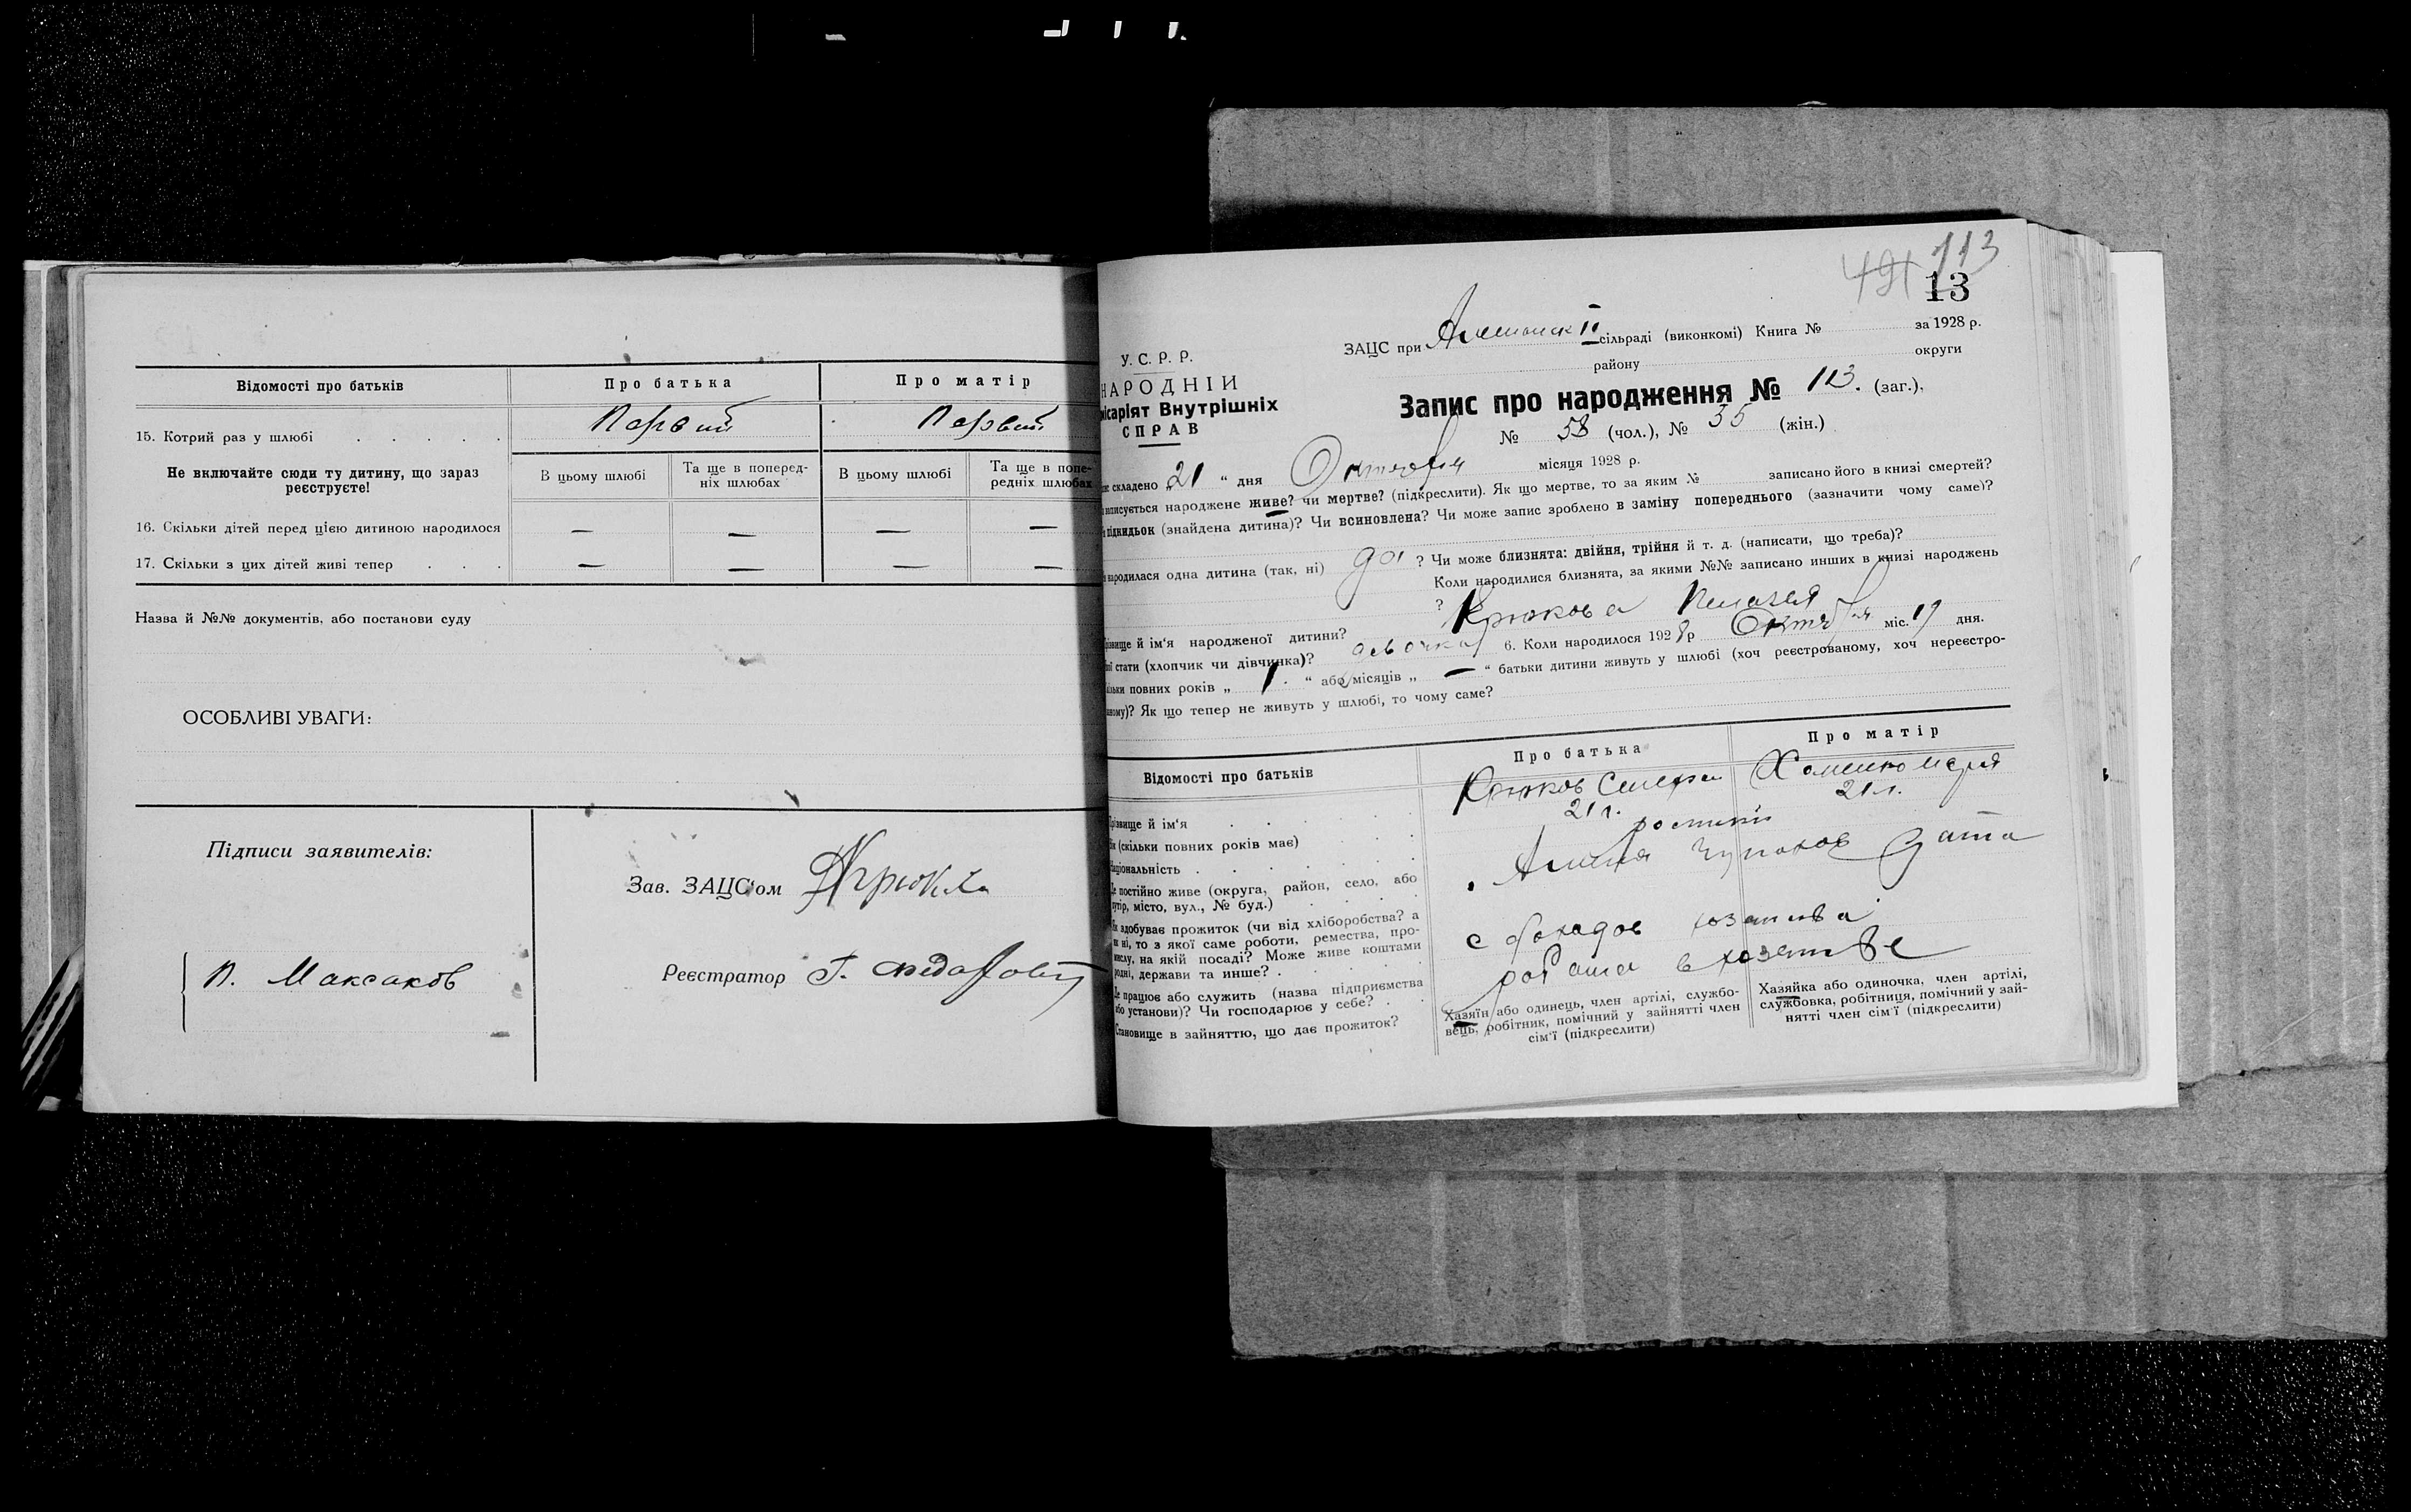 Відомості про батьків
Про батька
Про матір
15. Котрий раз у шлюбі . . . . .
Первий
Первий
Не включайте сюди ту дитину, що зараз
реєструєте!
В цьому шлюбі
Та ще в поперед-
ніх шлюбах
В цьому шлюбі
Та ще в попе-
редніх шлюбах
16. Скільки дітей перед цією дитиною народилося
— — — —
17. Скільки з цих дітей живі тепер . . .
— — — —
Назва й №№ документів, або постанови суду
ОСОБЛИВІ УВАГИ:
Підписи заявителів:
П. Максаков
Зав. ЗАЦС'ом
Реєстратор Г.
491 113
13
У. С. Р. Р.
НАРОДНІЙ
місаріят Внутрішніх
СПРАВ
ЗАЦС при сільраді (виконкомі) Книга № за 1928 р.
району округи
Запис про народження № 113. (заг.),
№ 58 (чол.), № 35 (жін.)
складено „21 “ дня Октября місяця 1928 р.
записується народжене живе? чи мертве? (підкреслити). Як що мертве, то за яким № записано його в книзі смертей?
підкидьок (знайдена дитина)? Чи всиновлена? Чи може запис зроблено в заміну попереднього (зазначити чому саме)?
народилася одна дитина (так, ні) да ? Чи може близнята: двійня, трійня й т. д. (написати, що треба)?
Коли народилися близнята, за якими №№ записано инших в книзі народжень
?
різвище й ім‘я народженої дитини? Крюкова Пелагея
стати (хлопчик чи дівчинка)? девочка 6. Коли народилося 1928 р Октября міс. 19 дня.
ільки повних років „ 1. “ або місяців „ — “ батьки дитини живуть у шлюбі (хоч реєстрованому, хоч нереєстро-
ному)? Як що тепер не живуть у шлюбі, то чому саме?
Відомості про батьків
Про батька
Про матір
різвище й ім‘я . . . .
Крюков
Хоменко
Вік (скільки повних років має) . .
21 г.
21 г.
Національність . . . . .
Де постійно живе (округа, район, село, або
хутір, місто, вул., № буд.) . . . .
Як здобуває прожиток (чи від хліборобства? а
як ні, то з якої саме роботи, ремества, про-
мислу, на якій посаді? Може живе коштами
родні, держави та инше? . . . . .
с доходов
Де працює або служить (назва підприємства
або установи)? Чи господарює у себе? . .
в
Становище в зайняттю, що дає прожиток?
Хазяїн або одинець, член артілі, службо-
вець, робітник, помічний у зайнятті член
сім‘ї (підкреслити)
Хазяйка або одиночка, член артілі,
службовка, робітниця, помічний у зай-
нятті член сім‘ї (підкреслити)